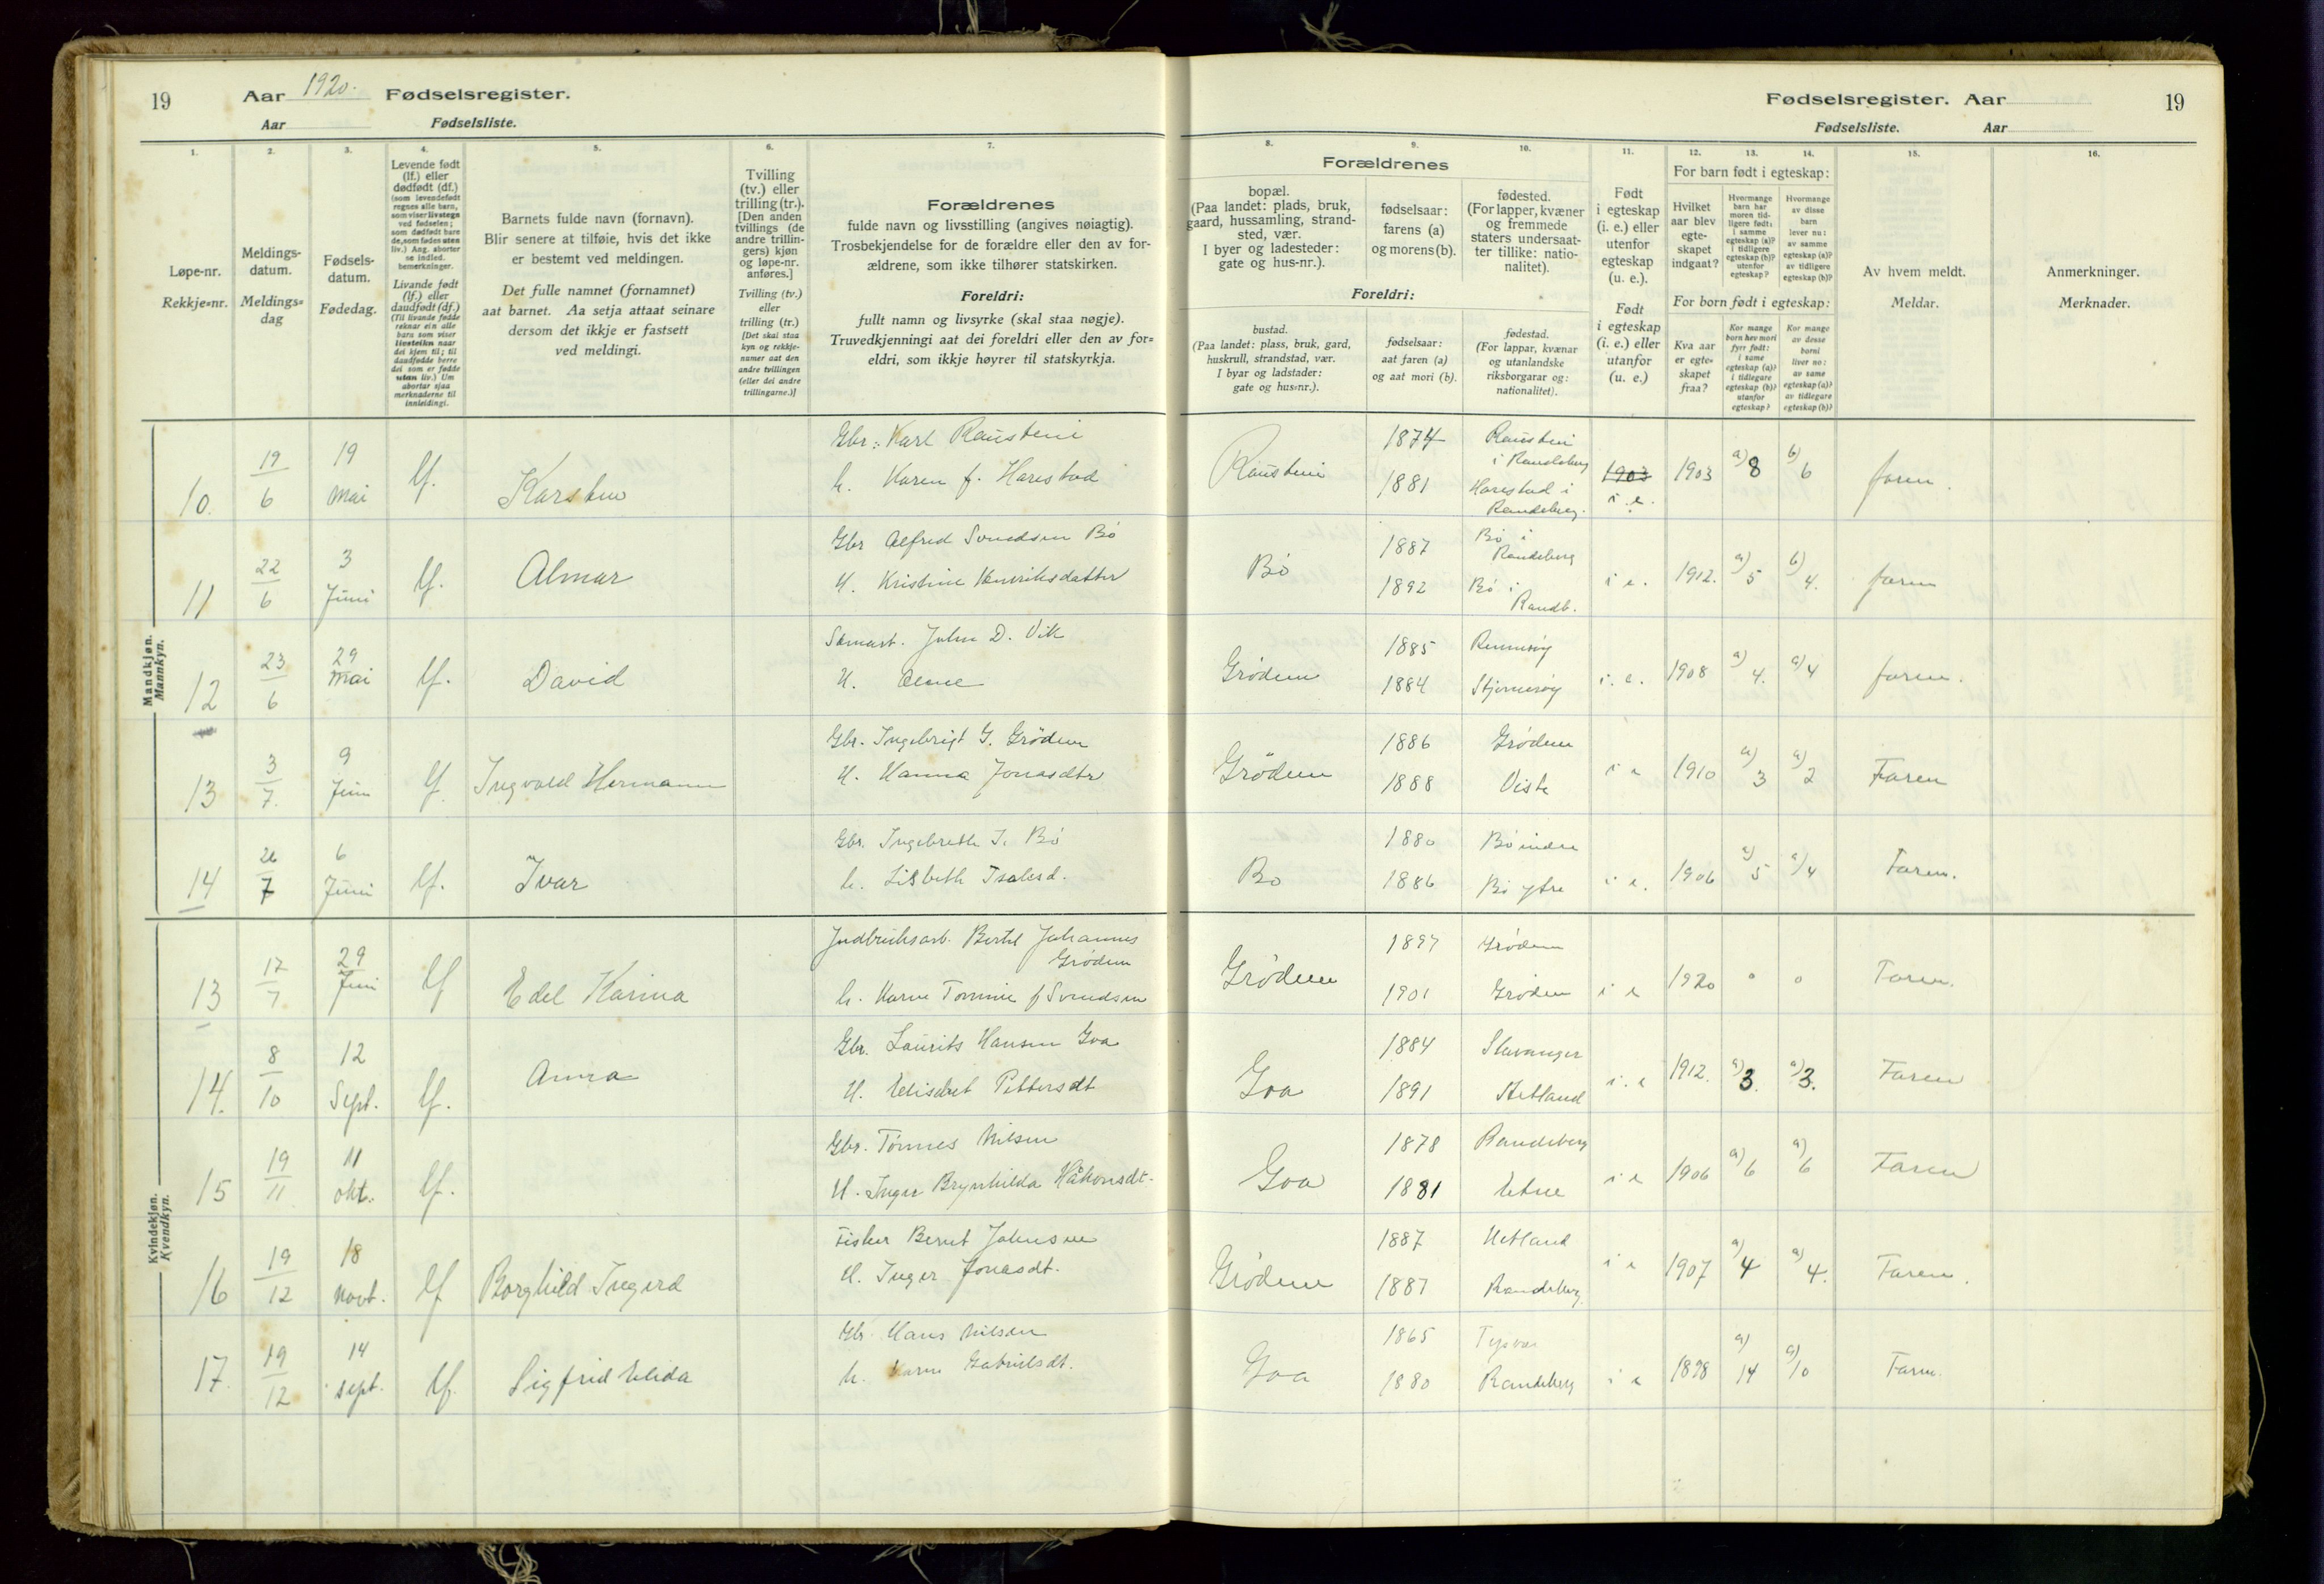 19 Aar 1920. Fødselsregister.
Aar Fødselsliste.
1.
Løpe-nr.
Rekkje-nr.
2.
Meldings-
datum.
Meldings-
dag
3.
Fødsels-
datum.
Fødedag.
4.
Levende født
(lf.) eller
dødfødt (df.)
(som levendefødt
regnes alle barn,
som viser livstegn
ved fødselen;
som dødfødt bare
de, som fødes uten
liv.) Ang. aborter
se indled.
bemerkninger.
Livande født
(lf.) eller
daudfødt (df.)
(Til livande fødde
reknar ein alle
barn som viser
livsteikn naar
dei kjem til; til
daudfødde berre
dei som er fødde
utan liv.) Um
abortar sjaa
merknaderne til
innleidingi.
5.
Barnets fulde navn (fornavn).
Blir senere at tilføie, hvis det ikke
er bestemt ved meldingen.
Det fulle namnet (fornamnet)
aat barnet. Aa setja attaat seinare
dersom det ikkje er fastsett
ved meldingi.
6.
Tvilling
(tv.) eller
trilling (tr.).
[Den anden
tvillings (de
andre trillin-
gers) kjøn
og løpe-nr.
anføres.]
Tvilling (tv.)
eller
trilling (tr.)
[Det skal staa
kyn og rekkje-
numer aat den
andre tvillingen
(eller dei andre
trillingarne.)]
7.
Forældrenes
fulde navn og livsstilling (angives nøiagtig).
Trosbekjendelse for de forældre eller den av for-
ældrene, som ikke tilhører statskirken.
Foreldri:
fullt namn og livsyrke (skal staa nøgje).
Truvedkjenningi aat dei foreldri eller den av for-
eldri, som ikkje høyrer til statskyrkja.
Fødselsregister. Aar 19
Fødselsliste. Aar
8.
Forældrenes
bopæl.
(Paa landet: plads, bruk,
gaard, hussamling, strand-
sted, vær.
I byer og ladesteder:
gate og hus-nr.).
Foreldri:
bustad.
(Paa landet: plass, bruk, gard,
huskrull, strandstad, vær.
I byar og ladstader:
gate og hus-nr.).
9.
fødselsaar:
farens (a)
og morens (b).
fødselsaar:
aat faren (a)
og aat mori (b).
10.
fødested.
(For lapper, kvæner
og fremmede
staters undersaat-
ter tillike: natio-
nalitet).
fødestad.
(For lappar, kvænar
og utanlandske
riksborgarar og:
nationalitet).
11.
Født
i egteskap
(i. e.) eller
utenfor
egteskap
(u. e.).
Født
i egteskap
(i. e.) eller
utanfor
(u. e.)
12.
For barn født i egteskap:
Hvilket
aar blev
egte-
skapet
indgaat?
For born født i egteskap:
Kva aar
er egte-
skapet
fraa?
13.
Hvormange
barn har
moren tid-
ligere født:
i samme
egteskap (a)?
i tidligere
egteskap (b)?
utenfor
egteskap?
Kor mange
born hev mori
fyrr født:
i same
egteskap (a)?
i tidlegare
egteskap (b)?
utanfor
egteskap?
14.
Hvormange
av disse
barn
lever nu:
av samme
egteskap (a)?
av tidligere
egteskap (b)?
Kor mange
av desse
borni
liver no:
av same
egteskap (a)?
av tidlegare
egteskap (b)?
15.
Av hvem meldt.
Meldar.
16.
Anmerkninger.
Merknader.
Mandkjøn.
Mannkyn.
10. 19/6 19 Mai lf. Karsten Gbr.: Karl Raustein h. Karen f. Harestad Raustein 1874 1881 Raustein i Randeberg Harestad i Randeberg. 1903 i e. 1903 a) 8 b) 6 faren.
11 22/6 3 Juni lf. Almar Gbr Alfred Svendsen Bø H. Kristine Henriksdatter Bø 1887 1892 Bø i Randeberg Bø i Randb. i e. 1912. a) 5 b) 4. faren
12 23/6 29 Mai lf. David John D. Vik H. Grødem 1885 1884 Rennesøy Stjernerøy i. e. 1908 a) 4. a) 4 faren.
13 3/7. 9 Juni lf. Ingvald Hermann Gbr. Ingebrigt G. Grødem H. Hanna Jonasdtr Grødem 1886 1888 Grødem Viste i e 1910 a) 3 a) 2 Faren
14 26/7 6 Juni lf. Ivar Gbr. Ingebreth I. Bø h. Lisbeth Bø 1880 1886 Bø indre Bø ytre i e. 1906 a) 5 a) 4 Faren.
Kvindekjøn.
Kvendkyn.
13 17/7 29 Juni lf Edel Karina Indbruksarb. Bertel Johannes Grødem h. Karen Tomine f Svendsen Grødem 1897 1901 Grødem Grødem i e 1920 0 0 Faren.
14. 8/10 12 Sept. lf. Anna Gbr. Laurits Hansen Goa H. Elisabet Pettersdt Goa 1884 1891 Stavanger Hetland i. e 1912. a) 3. a) 3. Faren
15 19/11 11 okt. lf. Gbr. Tønnes Nilsen H. Inger Brynhilda Håkonsdt. Goa 1878 1881 Randeberg Etne i e 1906 a) 6 a) 6 Faren
16 19/12 18 Novb. lf Borghild Ingerd Fisker Bernt Johnsen H. Inger Jonasdt. Grødem 1887 1887 Hetland Randeberg. i e 1907 a) 4 a) 4. Faren.
17. 19/12 14 sept. lf. Sigfrid Elida Gbr. Hans Nilsen h. Karen Gabrielsdt. Goa 1865 1880 Tysvær Randeberg i e 1898 a) 14 a) 10 Faren.